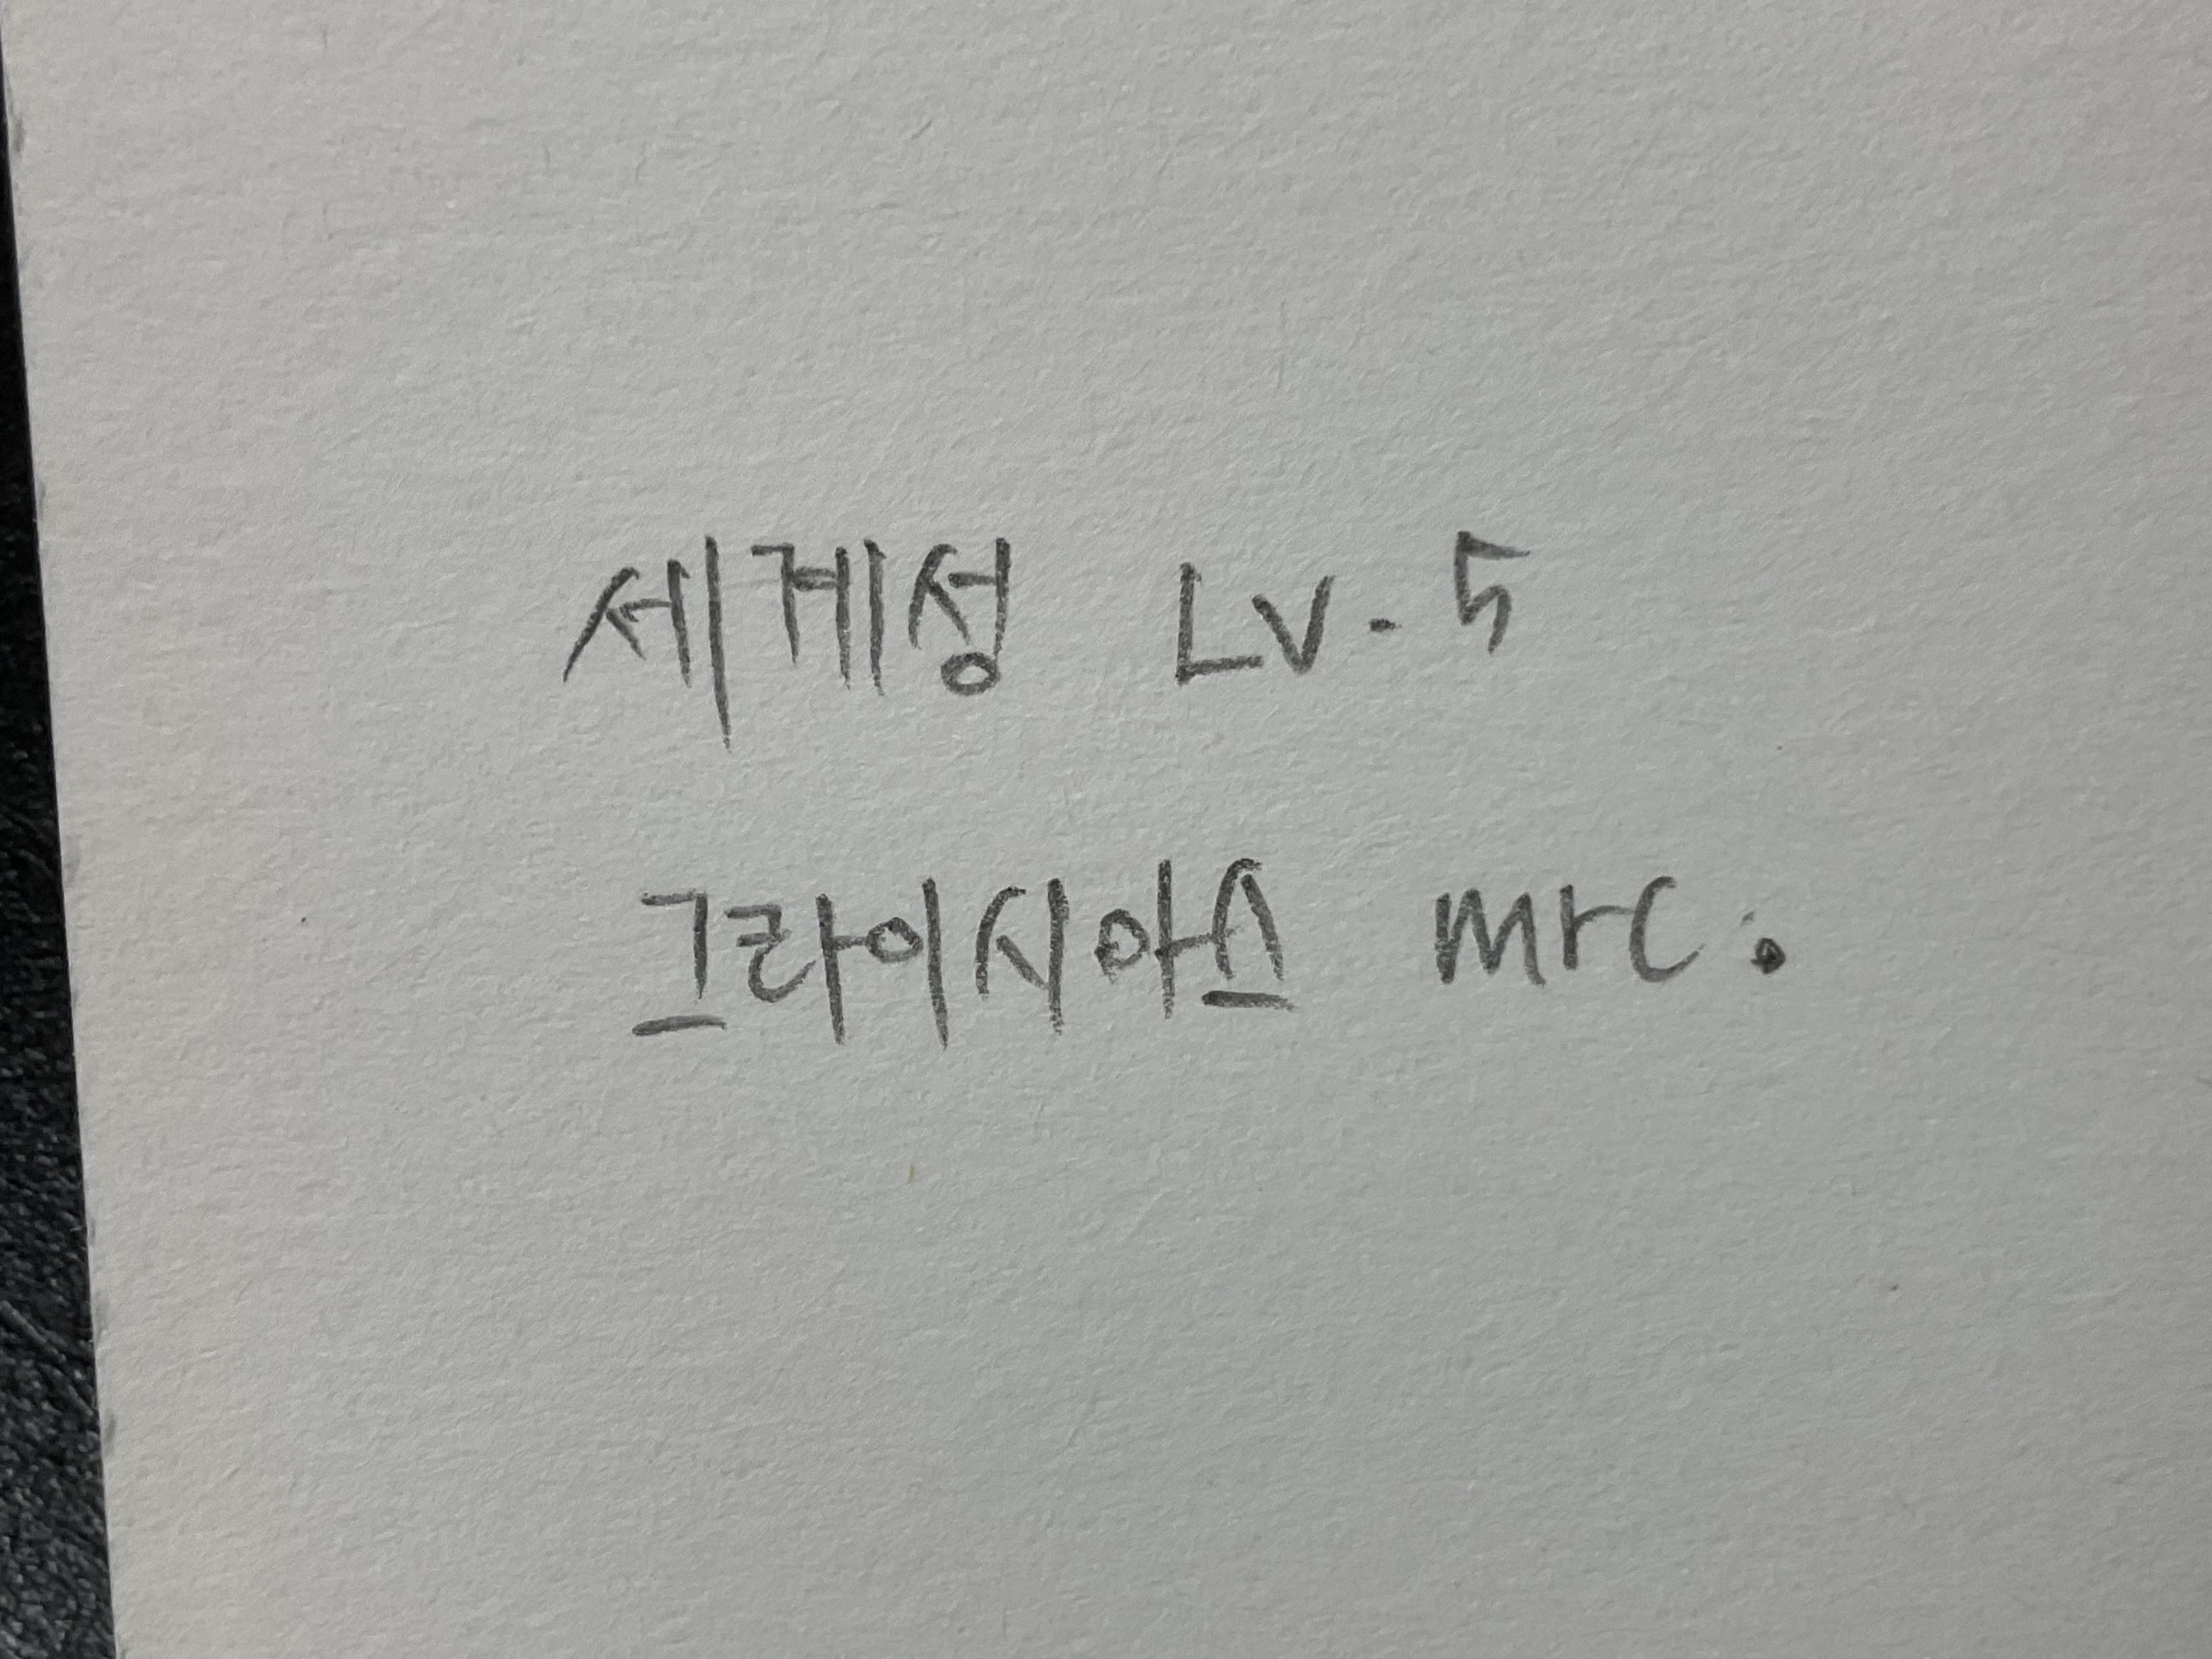 세계성 Lv-5
그라이시아스 mrc.